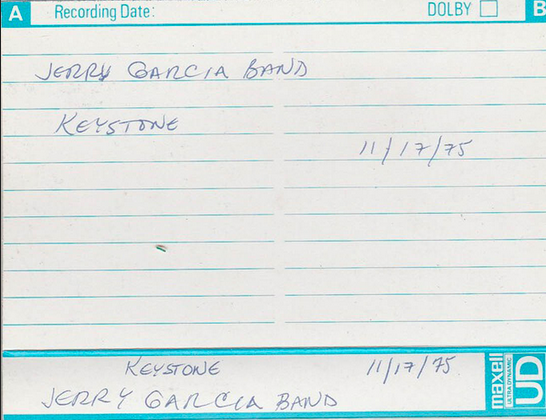 A Recording Date: DOLBY B
JERRY GARCIA BAND
KEYSTONE
11/17/75
KEYSTONE 11/17/75
JERRY GARCIA BAND
maxell
ULTRA DYNAMIC
UD